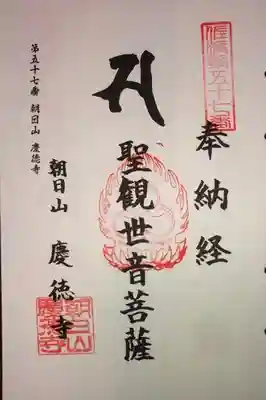 奉納経
聖観世音菩薩
朝日山 慶徳寺
第五十七番 朝日山 慶徳寺